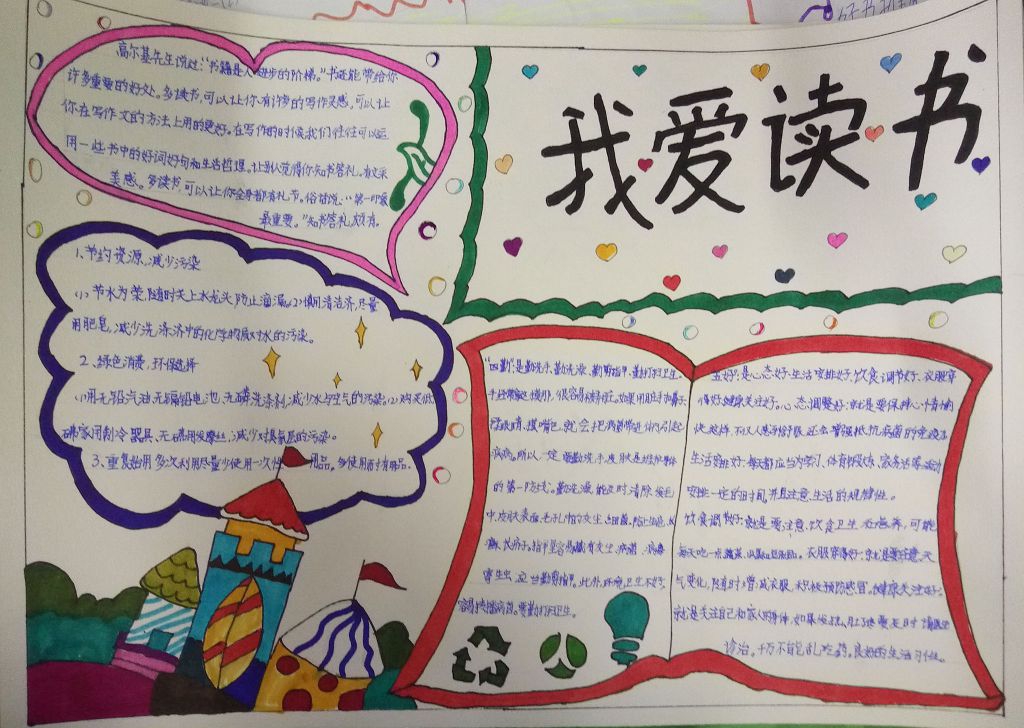 我爱读书
高尔基先生说过:“书籍是人进步的阶梯。”书还能带给你
许多重要的好处。多读书,可以让你有许多的写作灵感,可以让
你在写作文的方法上用的更好。在写作的时候,我们往往可以运
用一些书中的好词好句和生活哲理。让别人觉得你知书答礼,有文采
美感。多读书,可以让你全身都有礼节。俗话说:“第一印象
最重要。”知书答礼
1、节约资源,减少污染
(1)节水为荣,随时关上水龙头,防止滴漏。(2)慎用清洁济,尽量
用肥皂,减少洗涤济中的化学物质对水的污染。
2、绿色消费,环保选择
(1)用无铅汽油,无镉铅电池,无磷洗涤剂,减少水与空气的污染。(2)购买低
减少对臭氧层的污染。
3、重复始用,多次利用尽量少使用一次性用品。多使用耐用品。
“四勤”:是勤洗手、勤洗澡、勤剪指甲、勤打扫卫生。
手经常触摸那,很容易被弄脏。如果用脏手揉鼻子
挖眼睛、摸嘴巴,就会把病菌带进体内引起
疾病。所以,一定要勤洗手,皮肤是抵抗
的第一防线。勤洗澡,能及时清除
中,皮肤表面、毛孔中的灰尘、细菌,防止
指甲里容易藏有灰尘、病菌、病毒
寄生虫,应当勤剪指甲。此外,环境卫生不好,
容易传播病菌,要勤打扫卫生。
“五好”:是心态好、生活安排好、饮食调节好、衣服穿
得好、健康关注好。心态调整好:就是要保持心情愉
快这样,不仅人感到舒服,还会增强抵抗病菌的免疫力
生活安排好:每天都应当为学习、体育锻炼、家务活等活动
安排一定的时间,并且注意生活的规律性。
饮食调节好:就是要注意饮食卫生
每天吃一点蔬菜、衣服穿得好:就是要注意天
气变化,随时增减衣服,积极预防感冒。健康关注好:
就是关注自己和家人的身体,如果发热、肚子疼要及时
诊治。千万不能乱吃药。良好的生活习惯。